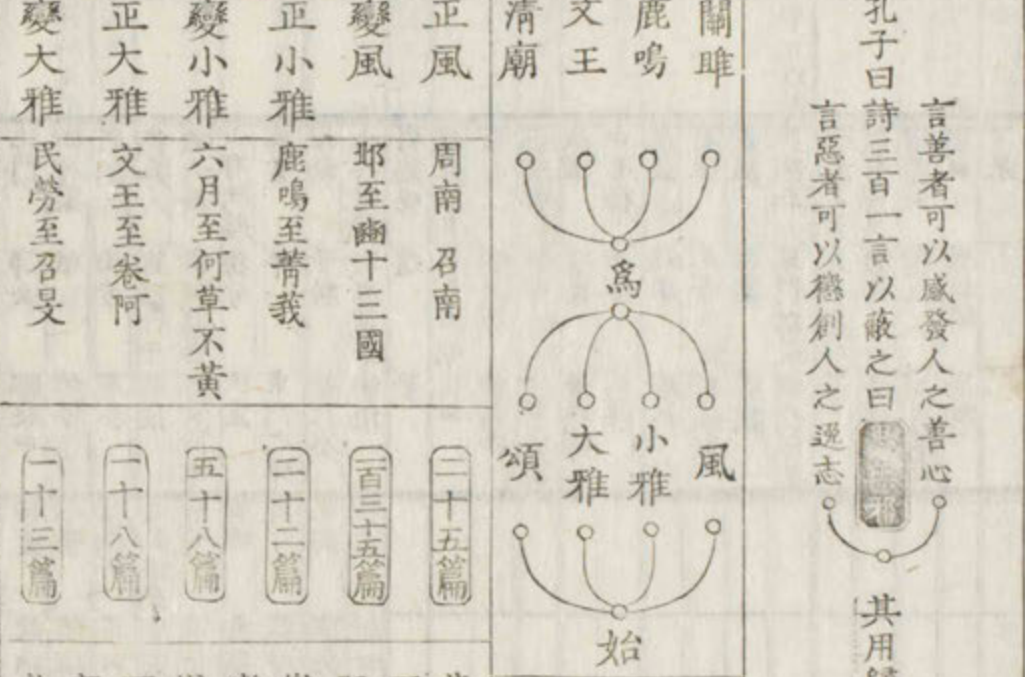 言善者可以感發人之善心
孔子曰詩三百一言以蔽之曰
言惡者可以懲創人之逸志
其用
關雎
鹿鳴
文王
清廟
爲
風
小雅
大雅
頌
始
正風
周南 召南
二十五篇
變風
邶至豳十三國
一百三十五篇
正小雅
鹿鳴至菁莪
二十二篇
變小雅
六月至何草不黃
五十八篇
正大雅
文王至卷阿
一十八篇
變大雅
民勞至召旻
一十三篇